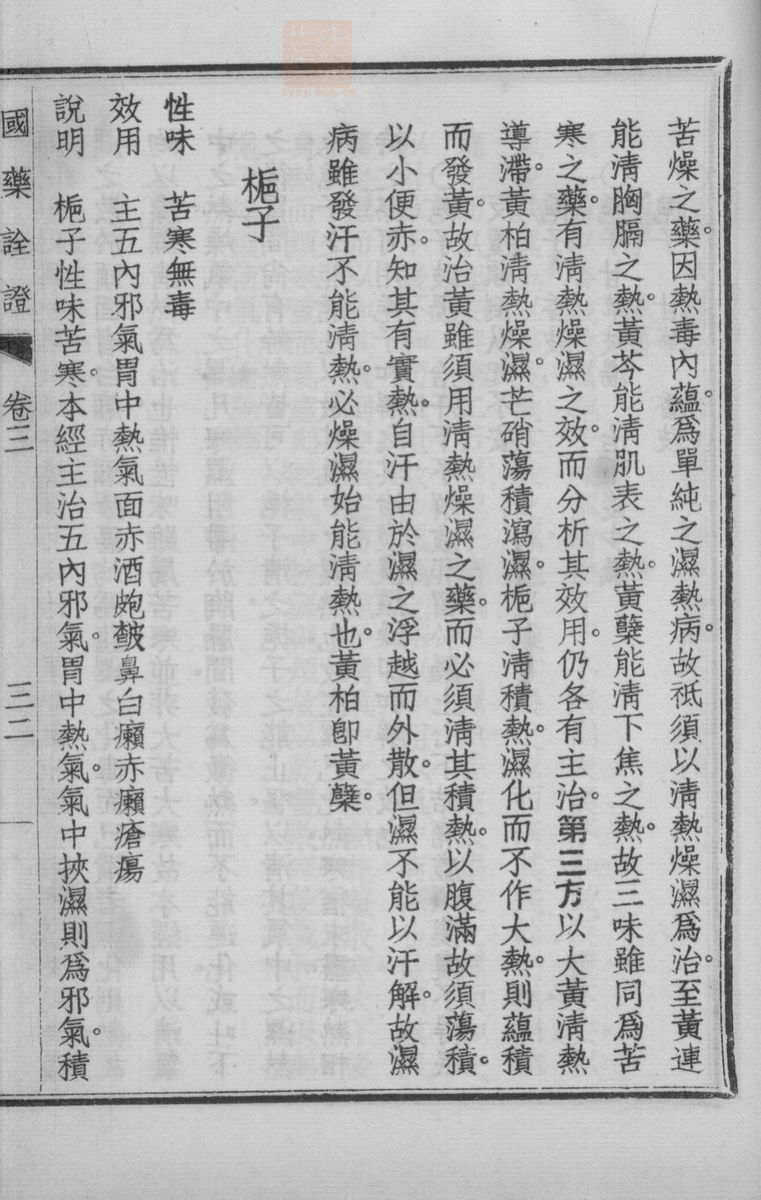 苦燥之藥。因熱毒內蘊。爲單純之濕熱病。故祗須以淸熱燥濕爲治。至黃連
能淸胸膈之熱。黃芩能淸肌表之熱。黃蘗能淸下焦之熱。故三味雖同爲苦
寒之藥。有淸熱燥濕之效。而分析其效用。仍各有主治。第三方以大黃淸熱
導滯。黃柏淸熱燥濕。芒硝蕩積瀉濕。梔子淸積熱。濕化而不作大熱。則蘊積
而發黃。故治黃雖須用淸熱燥濕之藥。而必須淸其積熱。以腹滿故須蕩積。
以小便赤。知其有實熱。自汗由於濕之浮越而外散。但濕不能以汗解。故濕
病雖發汗不能淸熱。必燥濕始能淸熱也。黃柏卽黃蘗。
梔子
性味　苦寒無毒
效用　主五內邪氣胃中熱氣面赤酒皰皶鼻白癩赤癩瘡瘍
說明　梔子性味苦寒。本經主治五內邪氣。胃中熱氣。氣中挾濕則爲邪氣。積
國藥詮證　卷三　三二